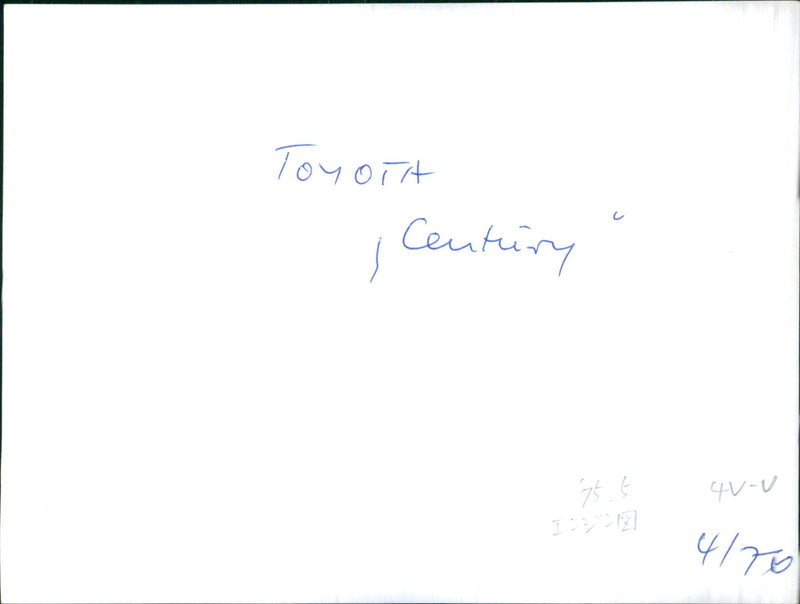 TOYOTA
„Century“
'75.5
エンジン図
4V-U
4/76